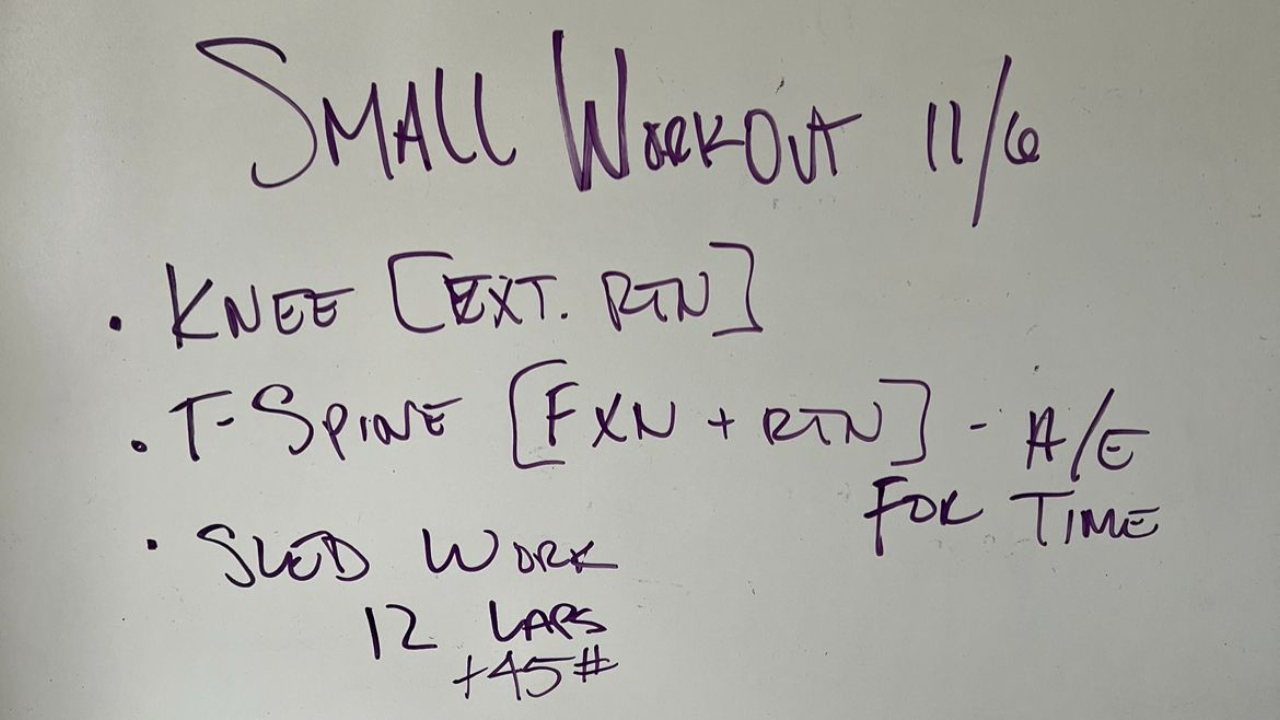 SMALL WORKOUT 11/6
• KNEE [EXT. RTN]
• T-SPINE [FXN + RTN] - A/E
FOR TIME
• SLED WORK
12 LAPS
+45#